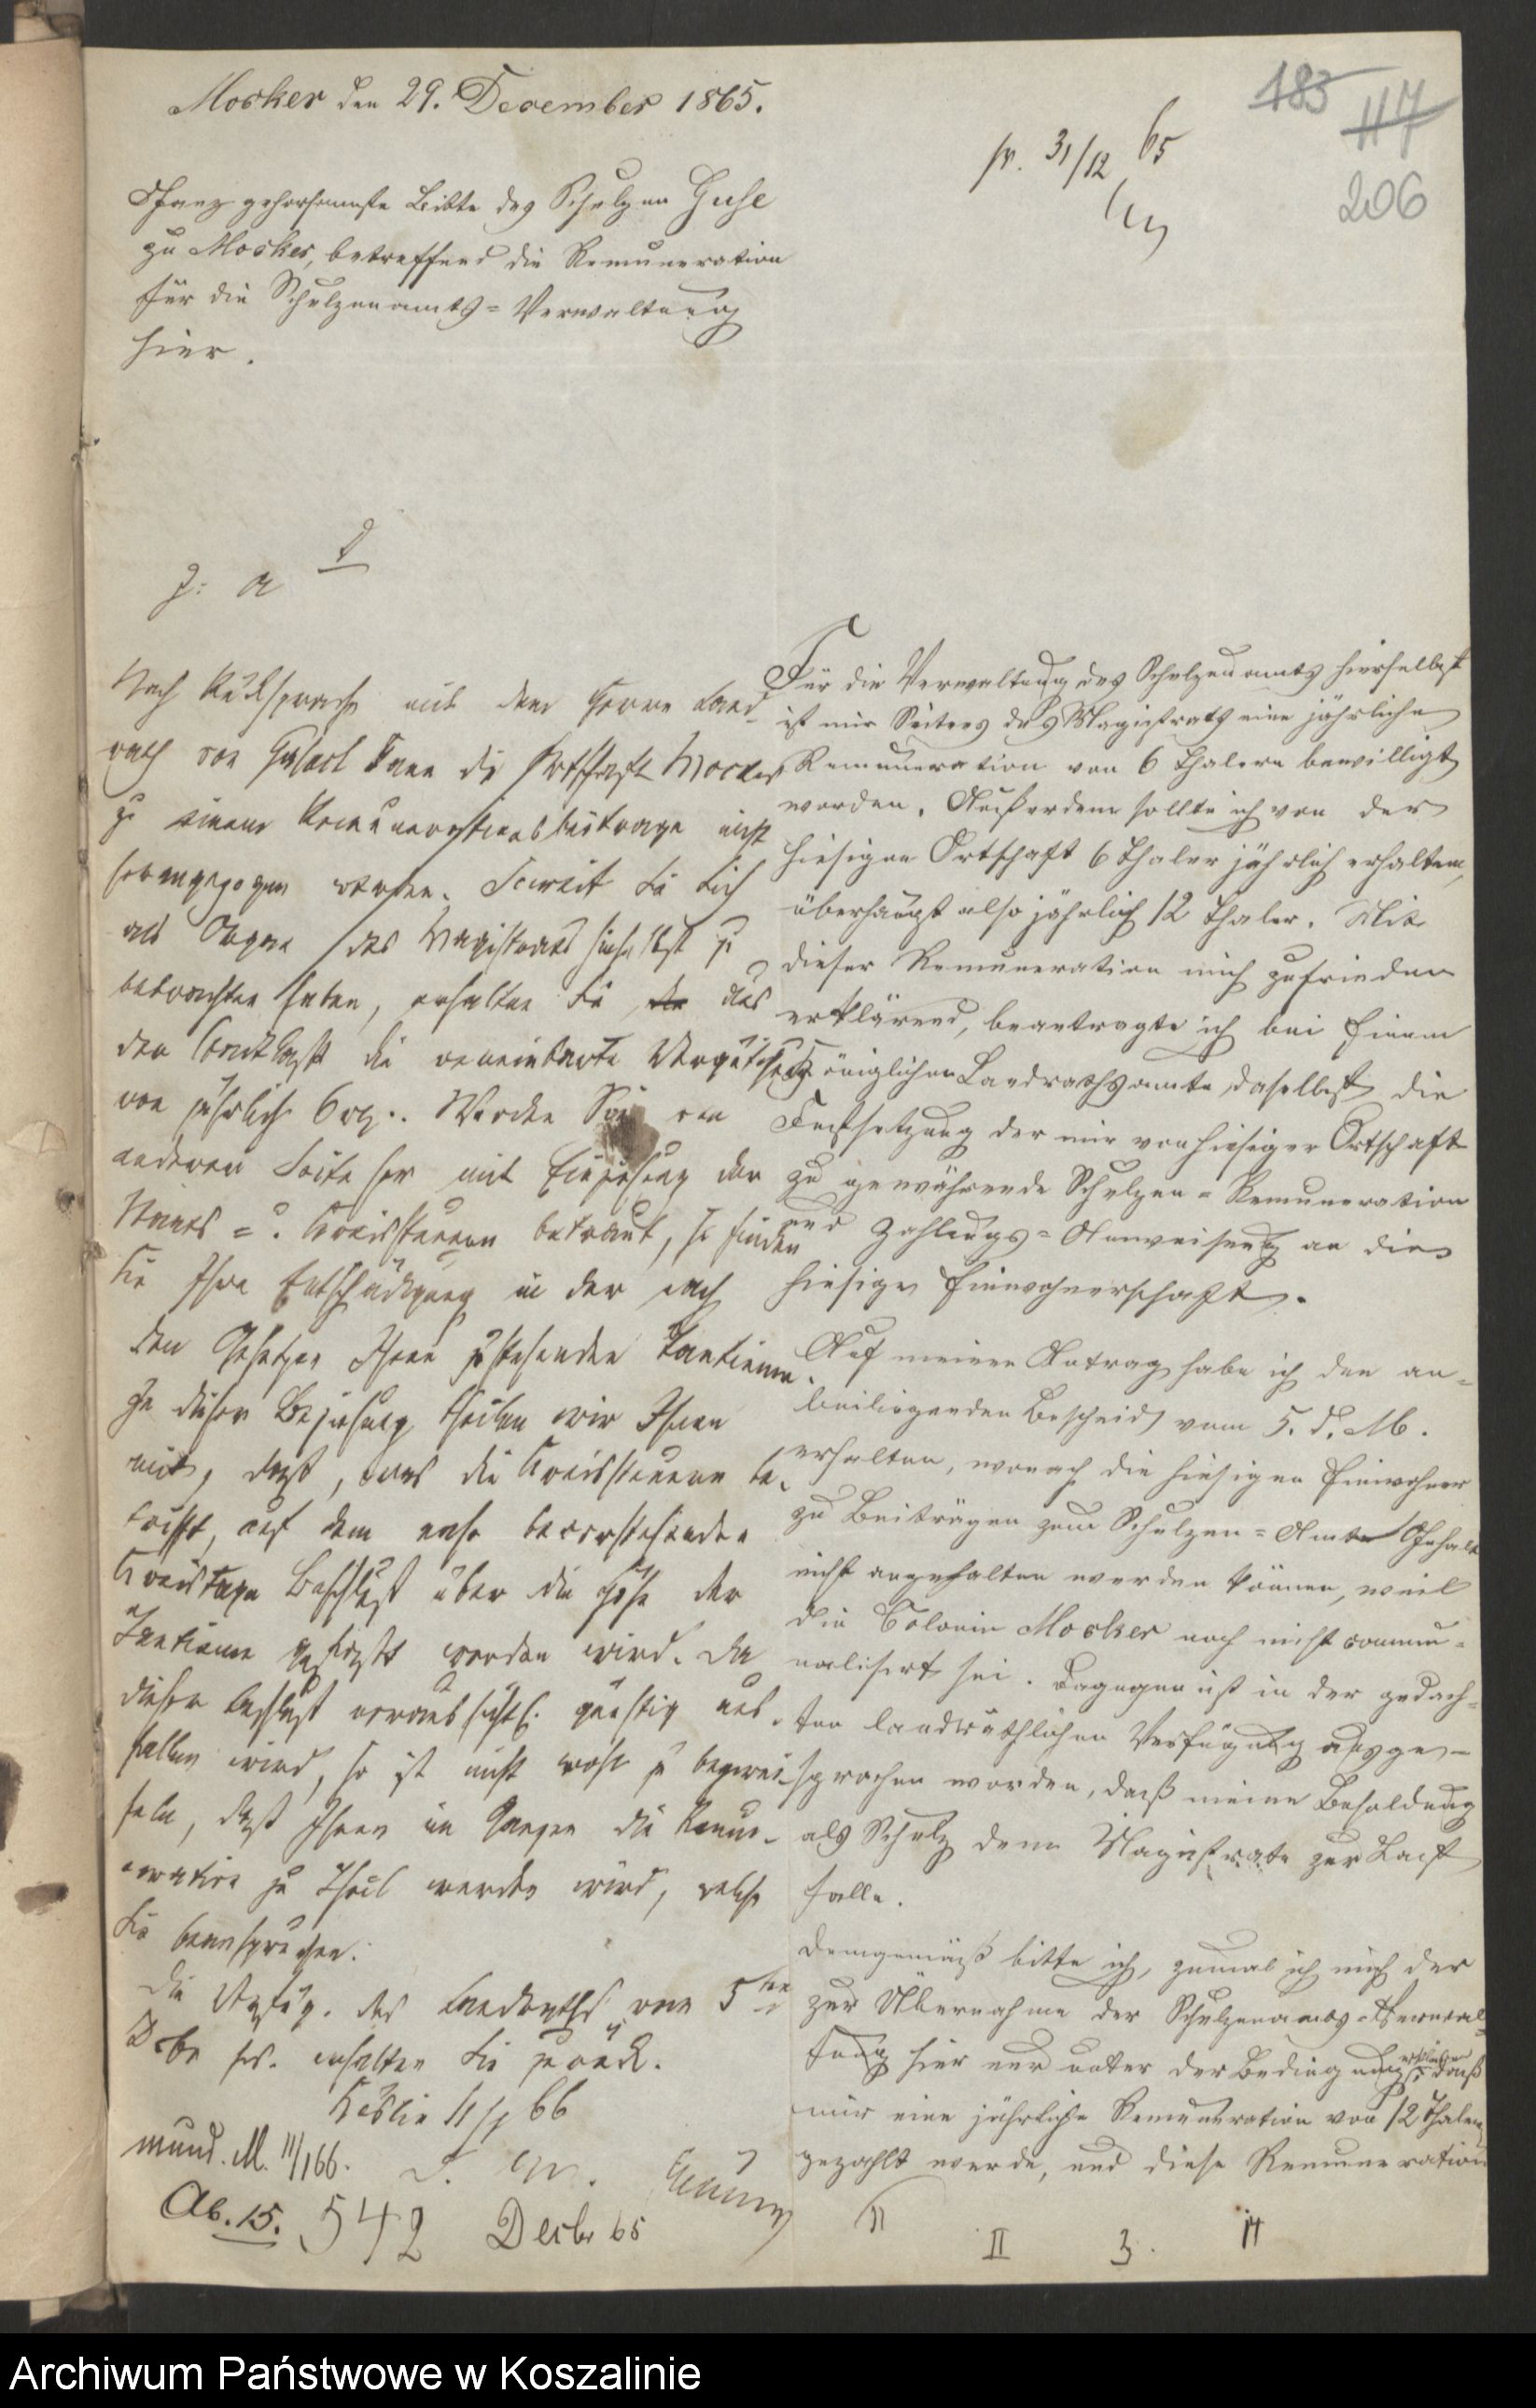 Mocker den 29. December 1865.
183
117
206
pr. 31/12 65
Ganz gehorsamste Bitte des Schulzen Guse
zu Mocker, betreffend die Remuneration
für die Schulzenamts-Verwaltung
hier.
Für die Verwaltung des Schulzenamts hierselbst
ist mir Seitens des Magistrats eine jährliche
Remuneration von 6 Thalern bewilligt
worden. Außerdem sollte ich von der
hiesigen Ortschaft 6 Thaler jährlich erhalten,
überhaupt also jährlich 12 Thaler. Mit
dieser Remuneration mich zufrieden
erklärend, beantragte ich bei Einem
Königlichen Landrathsamte daselbst die
Festsetzung der mir von hiesiger Ortschaft
zu gewährende Schulzen-Remuneration
und Zahlungs-Anweisung an die
hiesige Einwohnerschaft.
Auf meinen Antrag habe ich den an-
beiliegenden Bescheid vom 5. d. M.
erhalten, wonach die hiesigen Einwohner
zu Beiträgen zum Schulzen-Amts Gehalt
nicht angehalten werden können, weil
die Colonie Mocker noch nicht commu-
nalisirt sei. Dagegen ist in der gedach-
ten landräthlichen Verfügung ausge-
sprochen worden, daß meine Besoldung
als Schulz dem Magistrate zur Last
falle.
Demgemäß bitte ich, zumal ich mich der
zur Übernahme der Schulzenamts-Verwal-
tung hier nur unter der Bedingung daß
mir eine jährliche Remuneration von 12 Thalern
gezahlt werde, und diese Remuneration
Nach Rücksprache mit dem Herrn Land-
rath von kann die Ortschaft Mocker
zu einem Remunerationsbeitrage nicht
herangezogen werden. Soweit Sie sich
als Organ des Magistrats hierselbst zu
betrachten haben, erhalten Sie aus
der die vereinbarte Vergütung
von jährlich 6 rt. Werden Sie von
anderer Seite her mit Einziehung der
Staats- u. Kreissteuern betraut, so finden
Sie Ihre Entschädigung in der nach
den Gesetzen Ihnen zustehenden Tantieme.
In dieser Beziehung theilen wir Ihnen
mit, daß, was die Kreissteuern be-
trifft, auf dem nahe bevorstehenden
Kreistage Beschluß über die Höhe der
Tantieme gefaßt werden wird. Da
dieser Beschluß voraussichtl. günstig aus-
fallen wird, so ist nicht wohl zu bezwei-
feln, daß Ihnen im Ganzen die Remu-
neration zu Theil werden wird, welche
Sie beanspruchen.
Die Verfüg. des Landraths vom 5ten
Dcbr pr. erhalten Sie zurück.
Cöslin 11/1 66
mund. M. 11/1 66.
D. M.
Ab. 15.
542 Decbr 65
II 3.
Archiwum Państwowe w Koszalinie